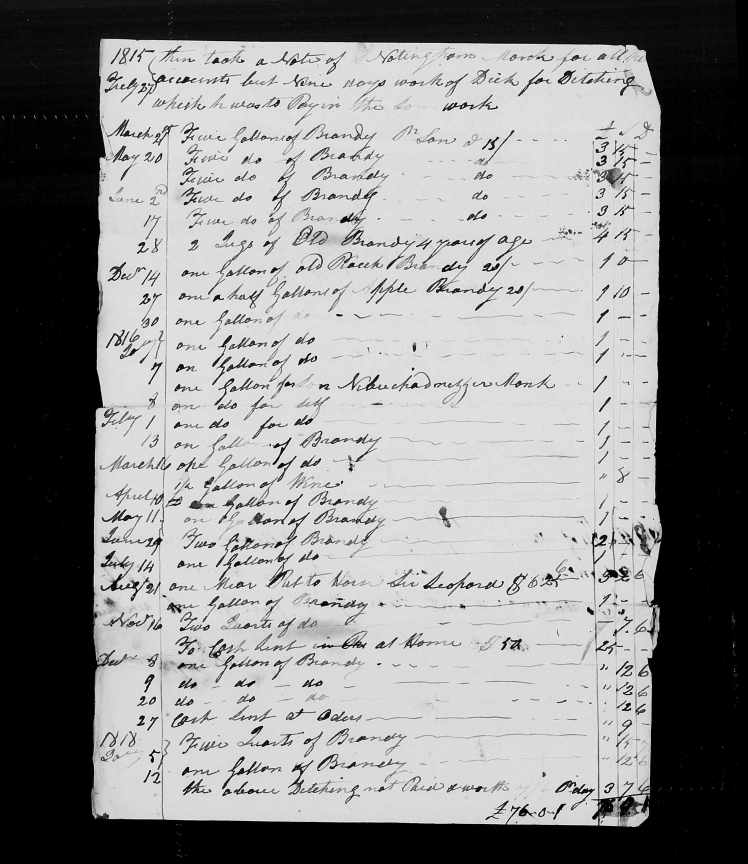 1815 then took a Note of Noting from March for all
July 27 accounts but Nine days work of Dick for Ditching
which he was to Pay in the work
£ S D
March 2d Five Gallons of Brandy Pr Son @ 15/ 3 15
May 20 Five do of Brandy do 3 15 -
Five do of Brandy do 3 15
June 2d Five do of Brandy do 3 15 -
17 Five do of Brandy do 3 15
28 2 Jugs of Old Brandy 4 years of age 4 15 -
Decr 14 one Gallon of old Peach Brandy 20/ 1 0 -
27 one a half Gallons of Apple Brandy 20/ 1 10 -
30 one Gallon of do 1 -
1816
one Gallon of do 1 -
7 on Gallon of do 1 -
one Gallon for Son Nebuchadnezzer Monk 1 -
8 one do for self 1
Feby 1 one do for do 1
13 on Gallon of Brandy 1 -
March 16 one Gallon of do 1 -
1/2 Gallon of Wine " 8 -
April 10 Gallon of Brandy 1 -
May 11 on Gallon of Brandy 1 -
June 29 Two Gallon of Brandy 2 -
July 14 one Gallon of do 1
Augt 21 one Mear Put to Horse Sir Leopard 2 6
one Gallon of Brandy 1 -
Novr 16 Two Quarts of do - 7 6
To Cash lent at Home 25 -
Decr 8 one Gallon of Brandy " 12 6
9 do - do - do " 12 6
20 do - do - do " 12 6
27 Cash lent at Oders " 9 -
1818
5 Five Quarts of Brandy " 15
12 one Gallon of Brandy " 12 6
the above Ditching not Paid & worth Pr day 3 7 6
£76-0-1